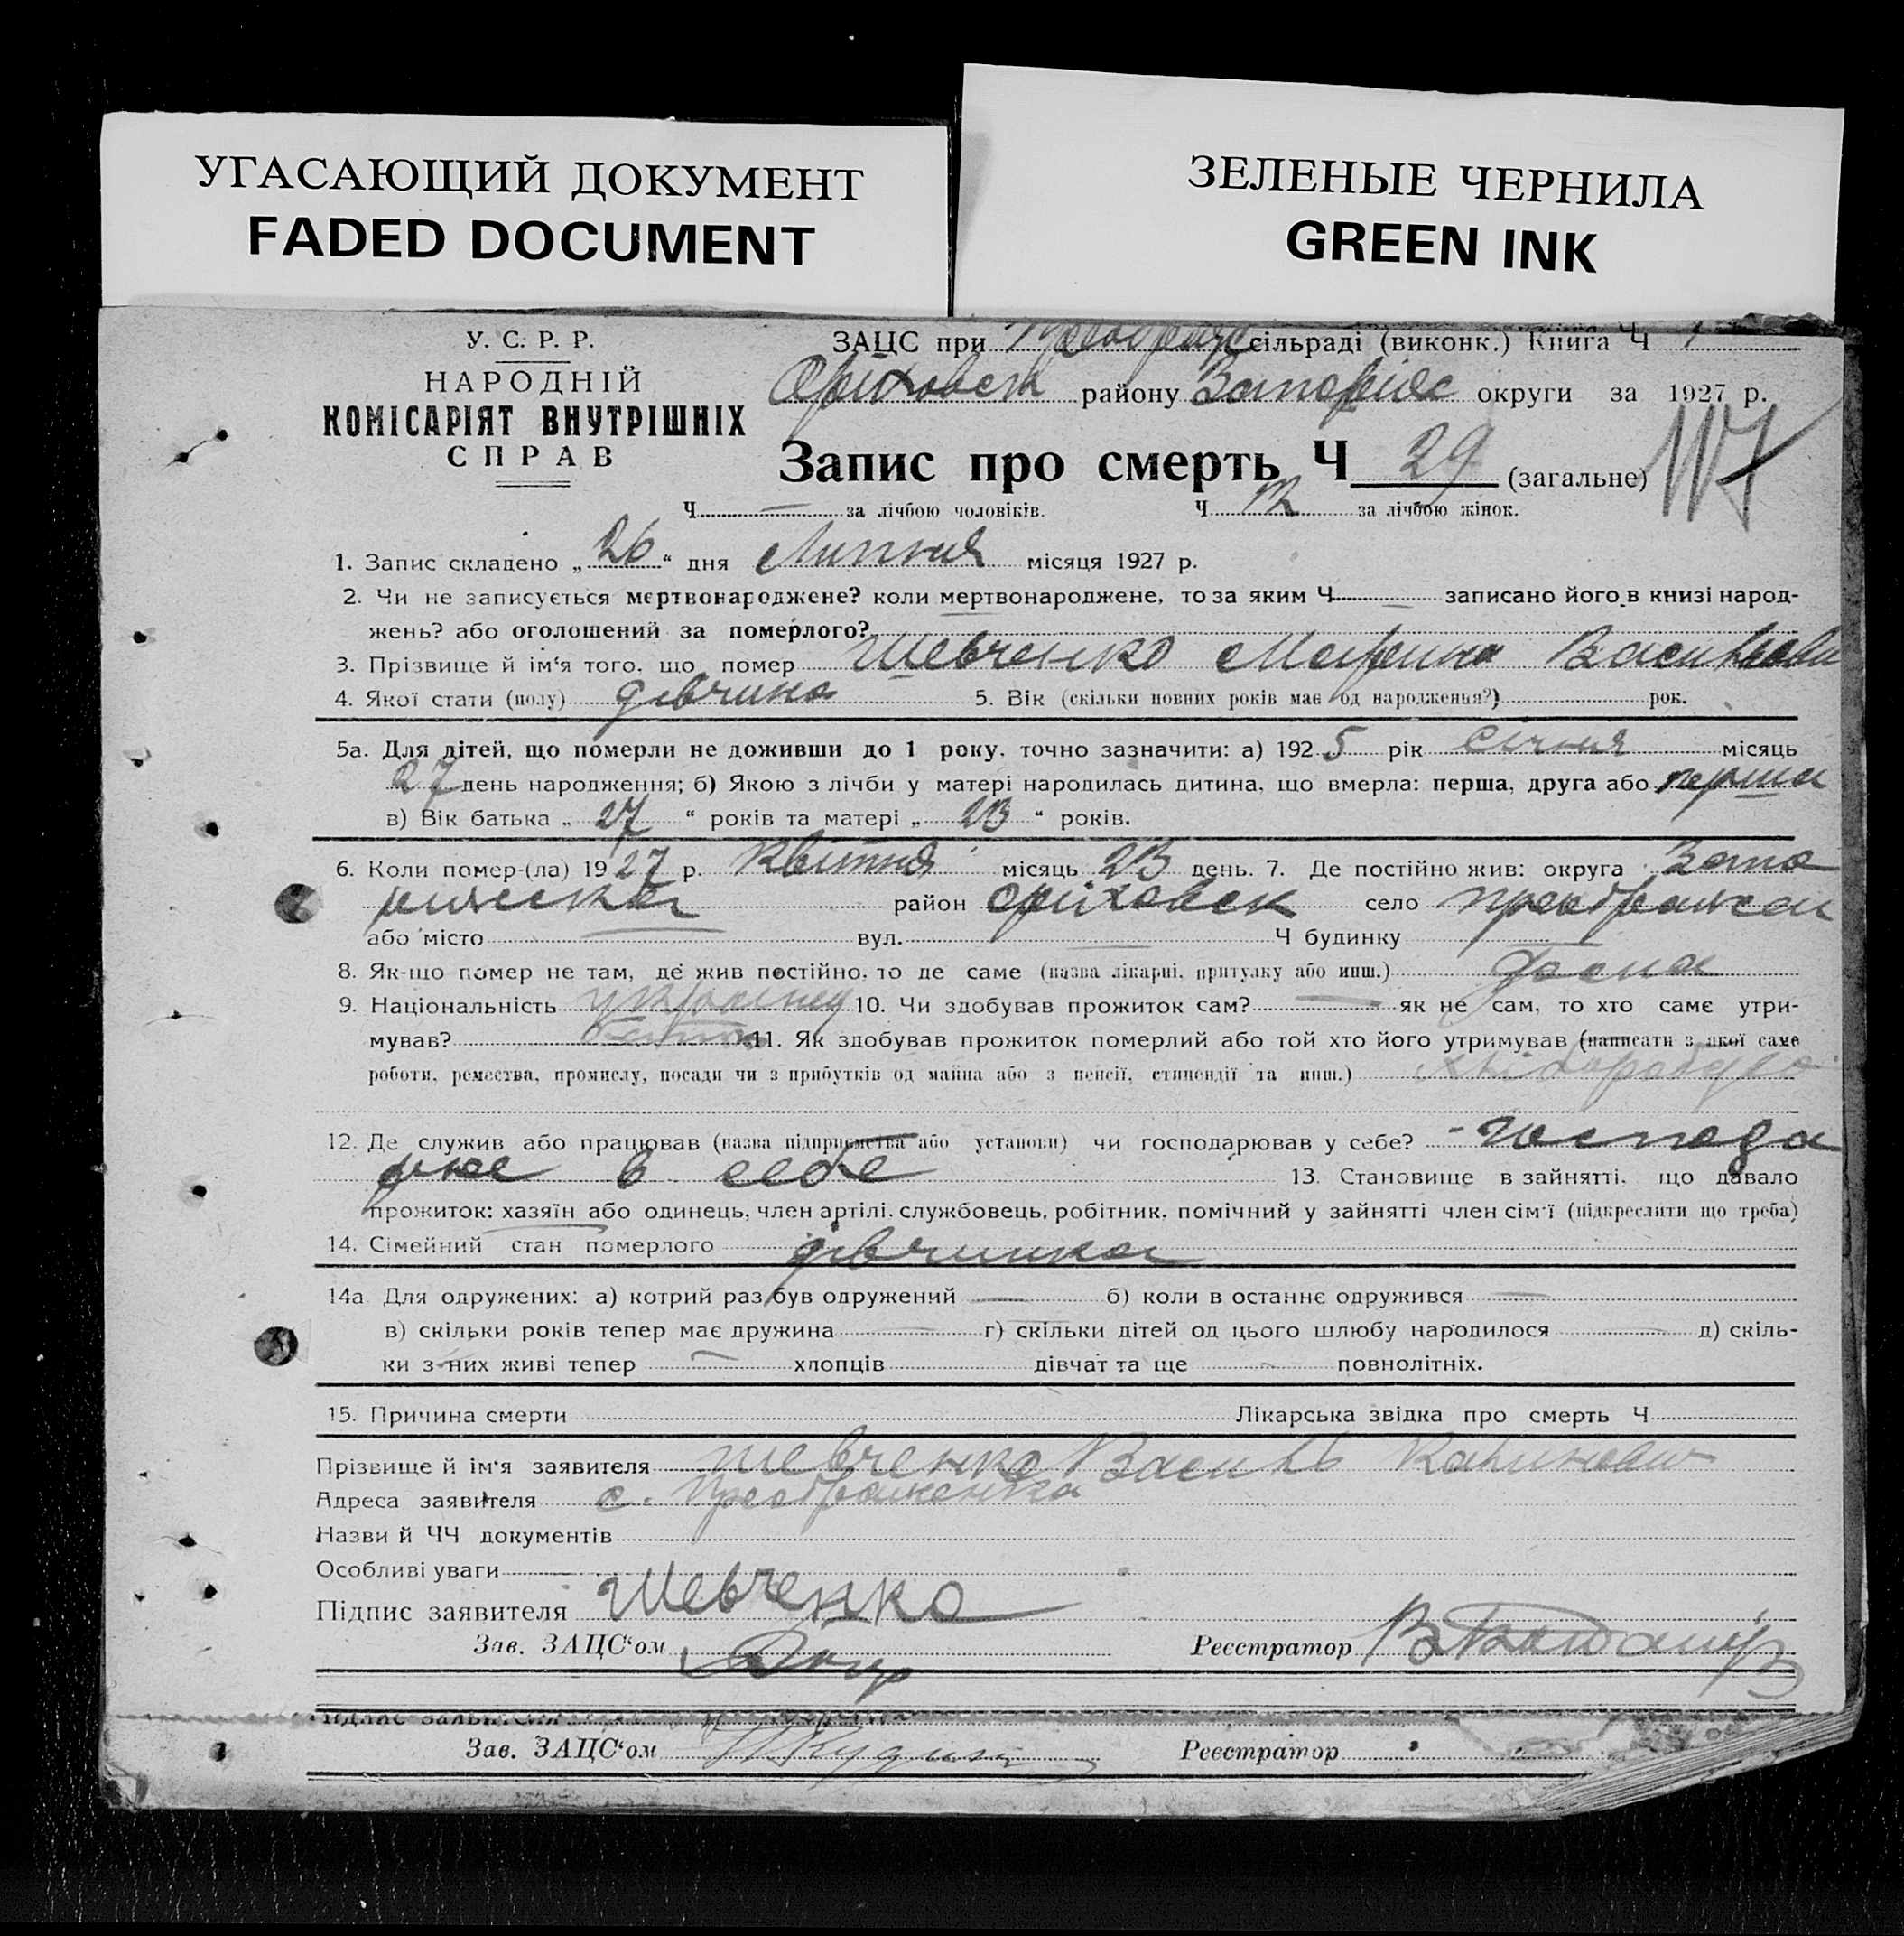 УГАСАЮЩИЙ ДОКУМЕНТ
FADED DOCUMENT
ЗЕЛЕНЫЕ ЧЕРНИЛА
GREEN INK
У. С. Р. Р.
НАРОДНІЙ
КОМІСАРІЯТ ВНУТРІШНІХ
СПРАВ
ЗАЦС при Преображ сільраді (виконк.) Книга Ч 1
Оріховськ району Запоріжс округи за 1927 р.
Запис про смерть Ч 29 (загальне)
Ч — за лічбою чоловіків. Ч 12 за лічбою жінок.
1. Запис складено „26“ дня Липня місяця 1927 р.
2. Чи не записується мертвонароджене? коли мертвонароджене, то за яким Ч — записано його в книзі народ-
жень? або оголошений за померлого?
3. Прізвище й ім'я того, що помер Шевченко Марина Васильовн
4. Якої стати (полу) дівчина 5. Вік (скільки повних років має од народження?) рок.
5а. Для дітей, що померли не доживши до 1 року, точно зазначити: а) 1925 рік Січня місяць
27 день народження; б) Якою з лічби у матері народилась дитина, що вмерла: перша, друга або перша
в) Вік батька „27“ років та матері „23“ років.
6. Коли помер-(ла) 1927 р. Квітня місяць 23 день. 7. Де постійно жив: округа Запо
ріжська район Оріховськ село Преображен
або місто — вул. — Ч будинку —
8. Як-що помер не там, де жив постійно, то де саме (назва лікарні, притулку або инш.) дома
9. Національність українец 10. Чи здобував прожиток сам? — як не сам, то хто саме утри-
мував? батько 11. Як здобував прожиток померлий або той хто його утримував (написати з якої саме
роботи, ремества, промислу, посади чи з прибутків од майна або з пенсії, стипендії та инш.) хліборобує
12. Де служив або працював (назва підприємства або установи) чи господарював у себе? Господа
рює в себе 13. Становище в зайнятті, що давало
прожиток: хазяїн або одинець, член артілі, службовець, робітник, помічний у зайнятті член сім'ї (підкреслити що треба)
14. Сімейний стан померлого дівчинка
14а Для одружених: а) котрий раз був одружений — б) коли в останнє одружився —
в) скільки років тепер має дружина — г) скільки дітей од цього шлюбу народилося — д) скіль-
ки з них живі тепер — хлопців дівчат та ще — повнолітніх.
15. Причина смерти Лікарська звідка про смерть Ч
Прізвище й ім'я заявителя Шевченко Василь Калинович
Адреса заявителя с. Преображенка
Назви й ЧЧ документів
Особливі уваги
Підпис заявителя Шевченко
Зав. ЗАЦС'ом Реєстратор
Зав. ЗАЦС'ом Реєстратор